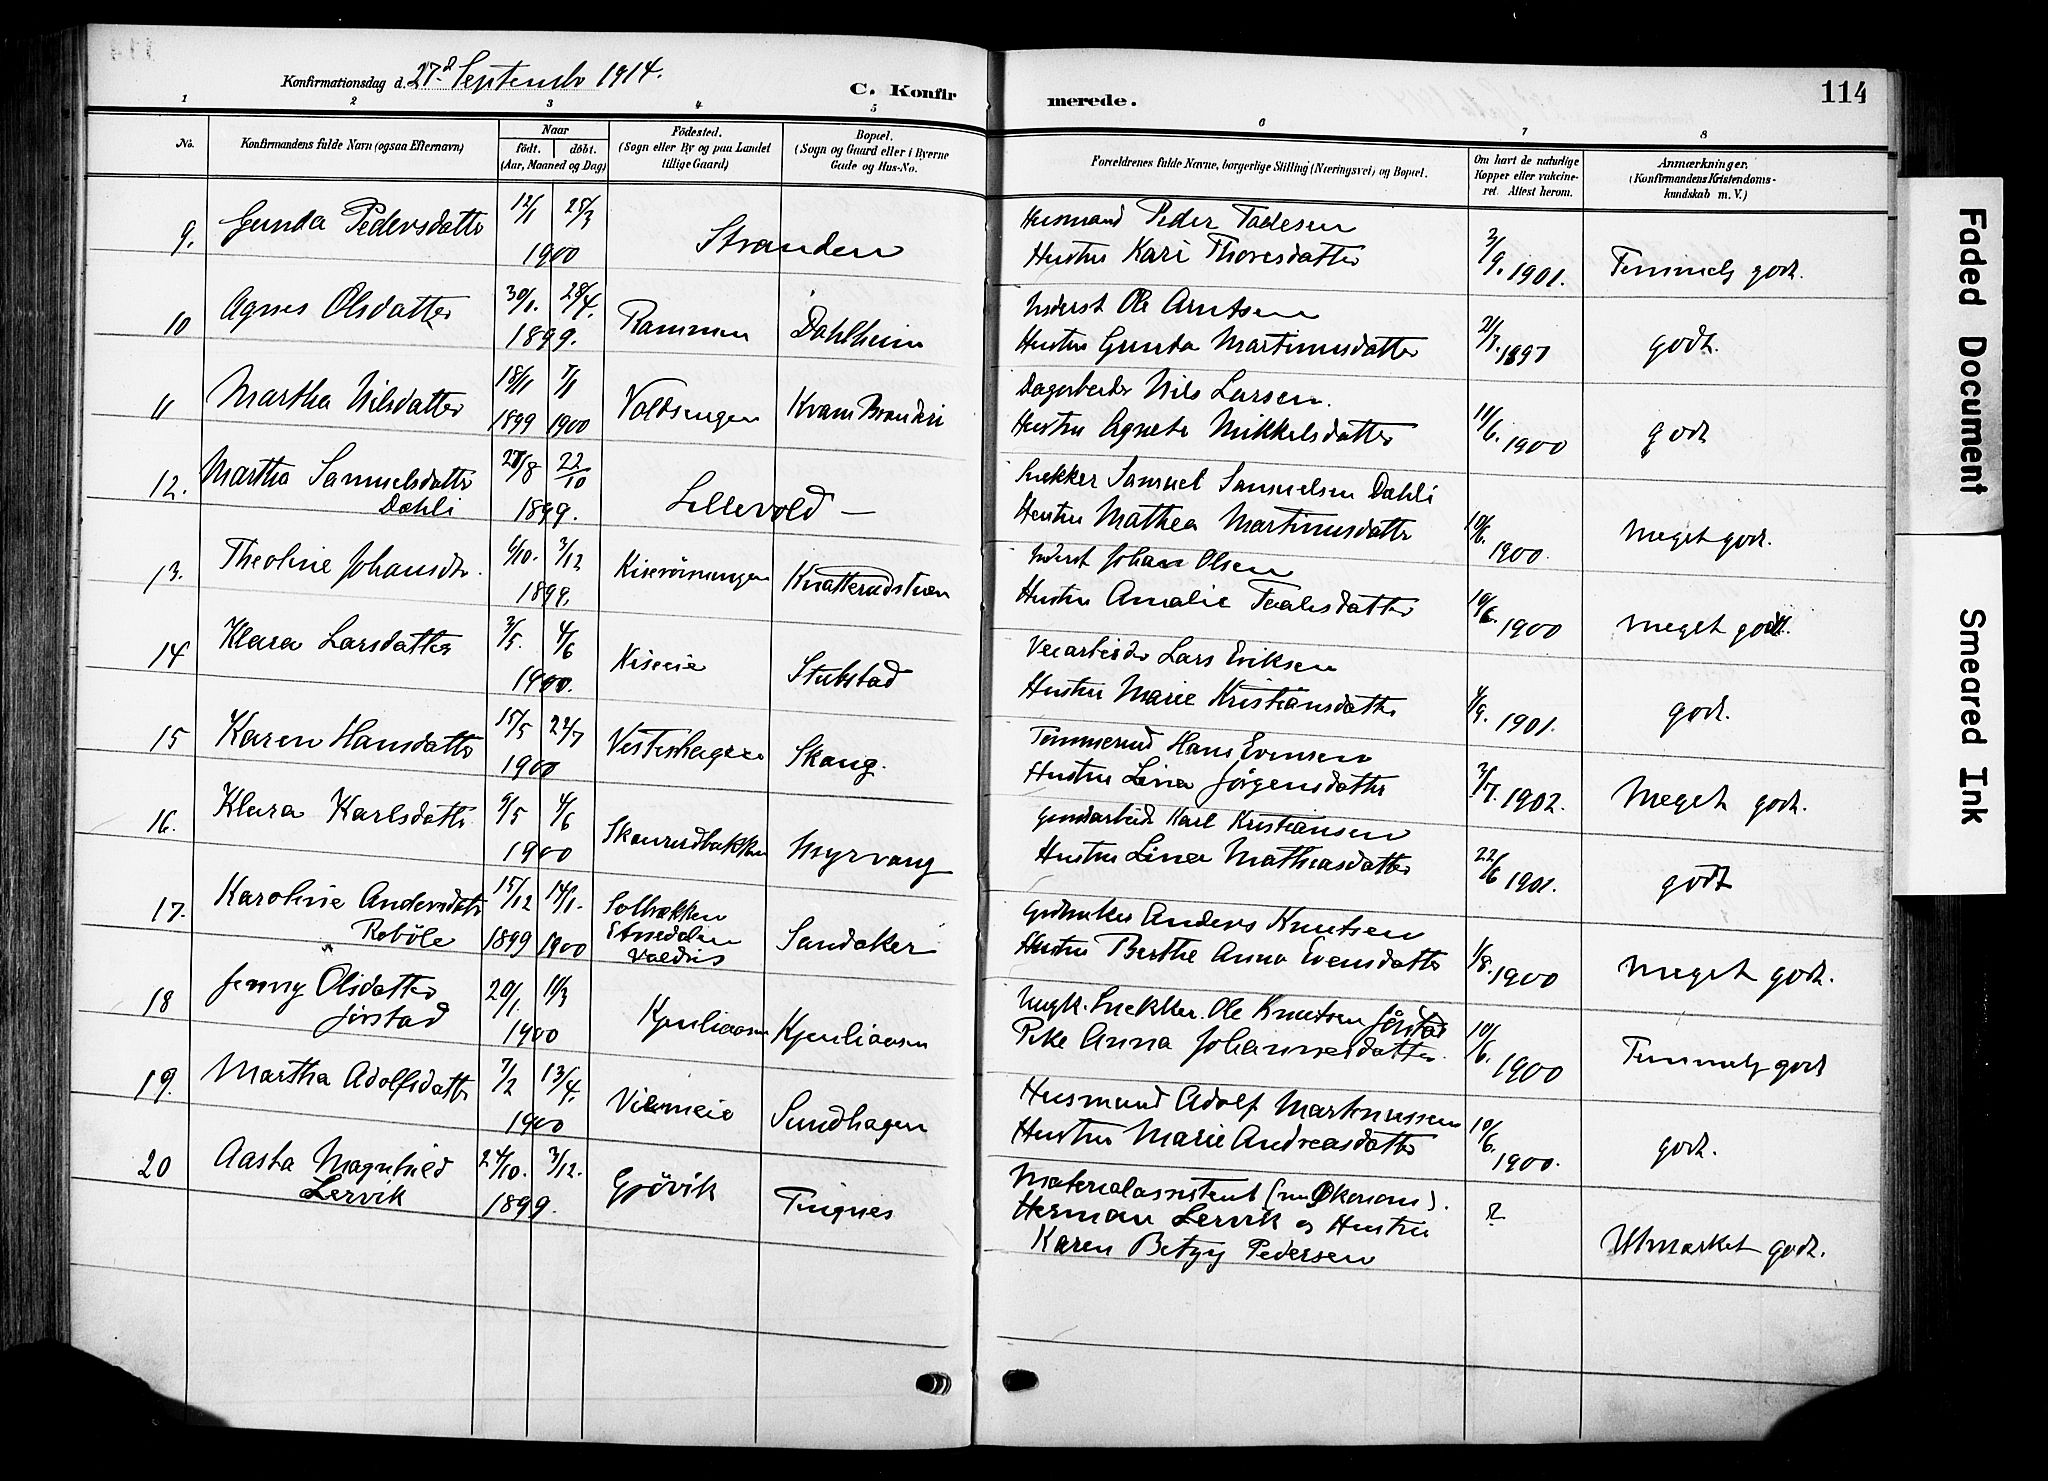 Konfirmationsdag d. 27d September 1914.
C. Konfirmerede.
114
1 2 3 4 5 6 7 8
No.
Konfirmandens fulde Navn (ogsaa Efternavn)
Naar
født. døbt.
(Aar, Maaned og Dag)
Födested.
(Sogn eller By og paa Landet
tillige Gaard)
Bopæl.
(Sogn og Gaard eller i Byerne
Gade og Hus-No.
Forældrenes fulde Navne, borgerlige Stilling (Næringsvei) og Bopæl.
Om havt de naturlige
Kopper eller vakcine-
ret. Attest herom.
Anmærkninger.
(Konfirmandens Kristendoms-
kundskab m. V.)
9. Gunda Pedersdatter 12/1 25/3 1900 Stranden
Husmand Peder
Hustru Kari Thoresdatter 3/9. 1901. Temmelig godt.
10 Agnes Olsdatter 30/1. 28/4. 1899. Rammen Dahlheim
Inderst Ole Arntsen
Hustru Gunda Martinusdatter 21/3. 1897 godt.
11 Martha Nilsdatter 18/11 1899 7/1 1900 Voldsengen Kvam Brænderi
Dagarbeider Nils Larsen.
Hustru Agnete Mikkelsdatter 11/6. 1900 godt
12. Martha Samuelsdatter
Dæhli 27/8 22/10 1899. Lillevold —
Snekker Samuel Samuelsen Dæhli
Hustru Mathea Martinusdatter 10/6. 1900. Meget godt.
13. Theoline Johansdr. 6/10. 3/12 1899.
Inderst Johan Olsen
Hustru Amalie 10/6. 1900 Meget godt.
14 Klara Larsdatter 3/5. 4/6 1900. Kiseeie Stubstad
Veiarbeider Lars Eriksen
Hustru Marie Kristiansdatter 4/9. 1901. godt.
15 Karen Hansdatter 15/5 22/7 1900 Vesterhagen Skaug.
Hans Evensen
Hustru Lina Jörgensdatter 3/7. 1902. Meget godt.
16. Klara Karlsdatter 9/5 4/6 1900 Skaurudbakken Myrvang
Karl Kristiansen
Hustru Lina Mathiasdatter 22/6 1901. godt
17. Karoline Andersdatter
Roböle 15/12 1899 14/1. 1900 Solbakken
Etnedalen
Valdris Sandaker
Gårdbruker Anders Knutsen
Hustru Berthe Anna Evensdatter 1/8. 1900 Meget godt.
18 Jenny Olsdatter
Jörstad 20/1. 11/3 1900 Kjenliaasen Kjenliaasen
Ungk. Snekker. Ole Knutsen Jörstad
Pike Anna Johannesdatter. 10/6. 1900 Temmelig godt
19. Martha Adolfsdatter 7/2 13/4. 1900 Sundhagen
Husmand Adolf Martinussen
Hustru Marie Andreasdatter 10/6. 1900. godt.
20 Aasta Magnhild
Lervik 24/10. 3/12. 1899. Gjövik Tingnes
Materialassistent (nu Økonom).
Herman Lervik og Hustru
Karen Betzy Pedersen ? Utmærket godt.
Faded Document
Smeared Ink